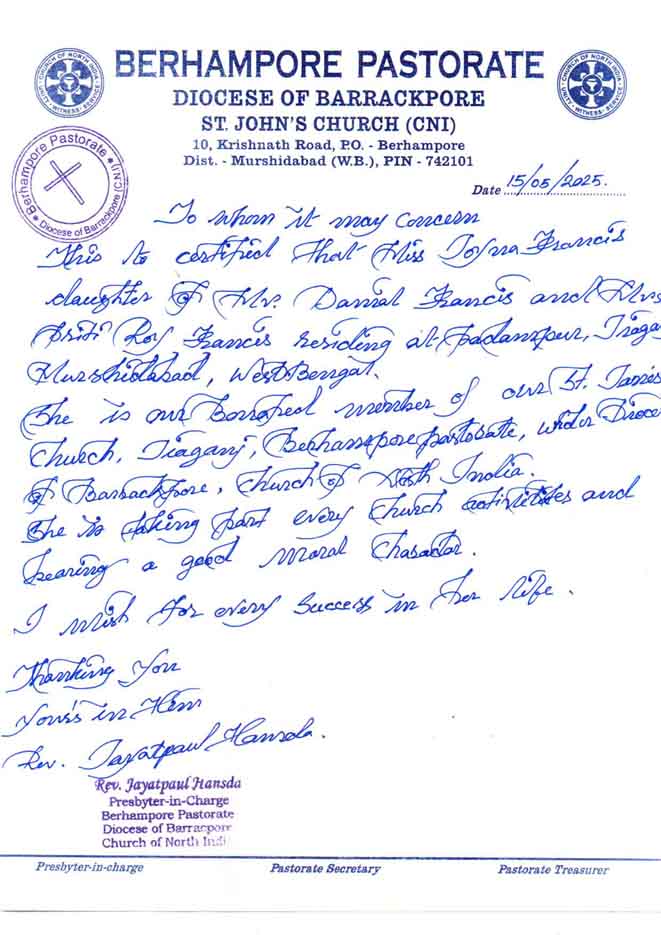 BERHAMPORE PASTORATE
DIOCESE OF BARRACKPORE
ST. JOHN'S CHURCH (CNI)
10, Krishnath Road, P.O. - Berhampore
Dist. - Murshidabad (W.B.), PIN - 742101
CHURCH OF NORTH INDIA
UNITY · WITNESS · SERVICE
CHURCH OF NORTH INDIA
UNITY · WITNESS · SERVICE
Berhampore Pastorate
Diocese of Barrackpore (C.N.I)
Date 15/05/2025.
To whom it may concern
This is certified that Miss Francis
daughter of Mr. Danial Francis and Mrs
Priti Roy Francis residing at Padampur,
Murshidabad, West Bengal.
She is our member of our St.
Church, Jiaganj, Berhampore pastorate, under Dioce
of Barrackpore, Church of North India.
She is taking part every Church activities and
bearing a good moral Character.
I wish for every Success in her life.
Thanking You
Your's in Him
Rev. Jayatpaul Hansda.
Rev. Jayatpaul Hansda
Presbyter-in-Charge
Berhampore Pastorate
Diocese of Barracpore
Church of North Indi
Presbyter-in-charge Pastorate Secretary Pastorate Treasurer